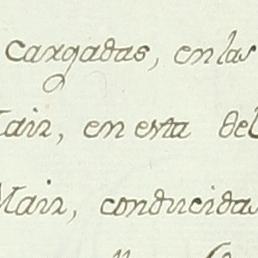 cargadas, en las
Mair, en esta del
Mair, conducidas